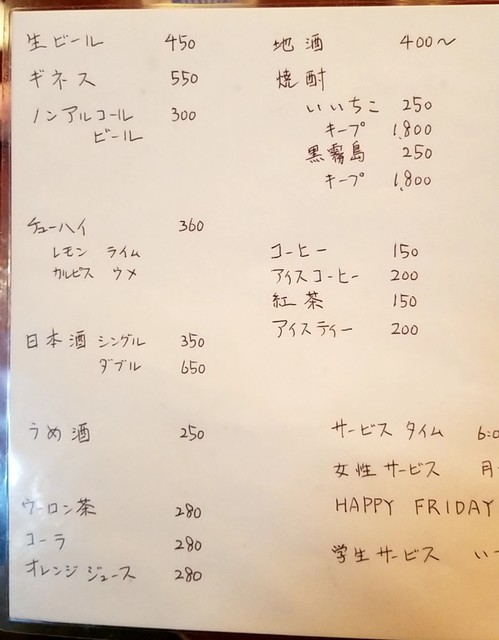 生ビール 450
ギネス 550
ノンアルコール 300
ビール
チューハイ 360
レモン ライム
カルピス ウメ
日本酒 シングル 350
ダブル 650
うめ酒 250
ウーロン茶 280
コーラ 280
オレンジジュース 280
地酒 400〜
焼酎
いいちこ 250
キープ 1,800
黒霧島 250
キープ 1,800
コーヒー 150
アイスコーヒー 200
紅茶 150
アイスティー 200
サービスタイム 6:0
女性サービス 月
HAPPY FRIDAY
学生サービス い